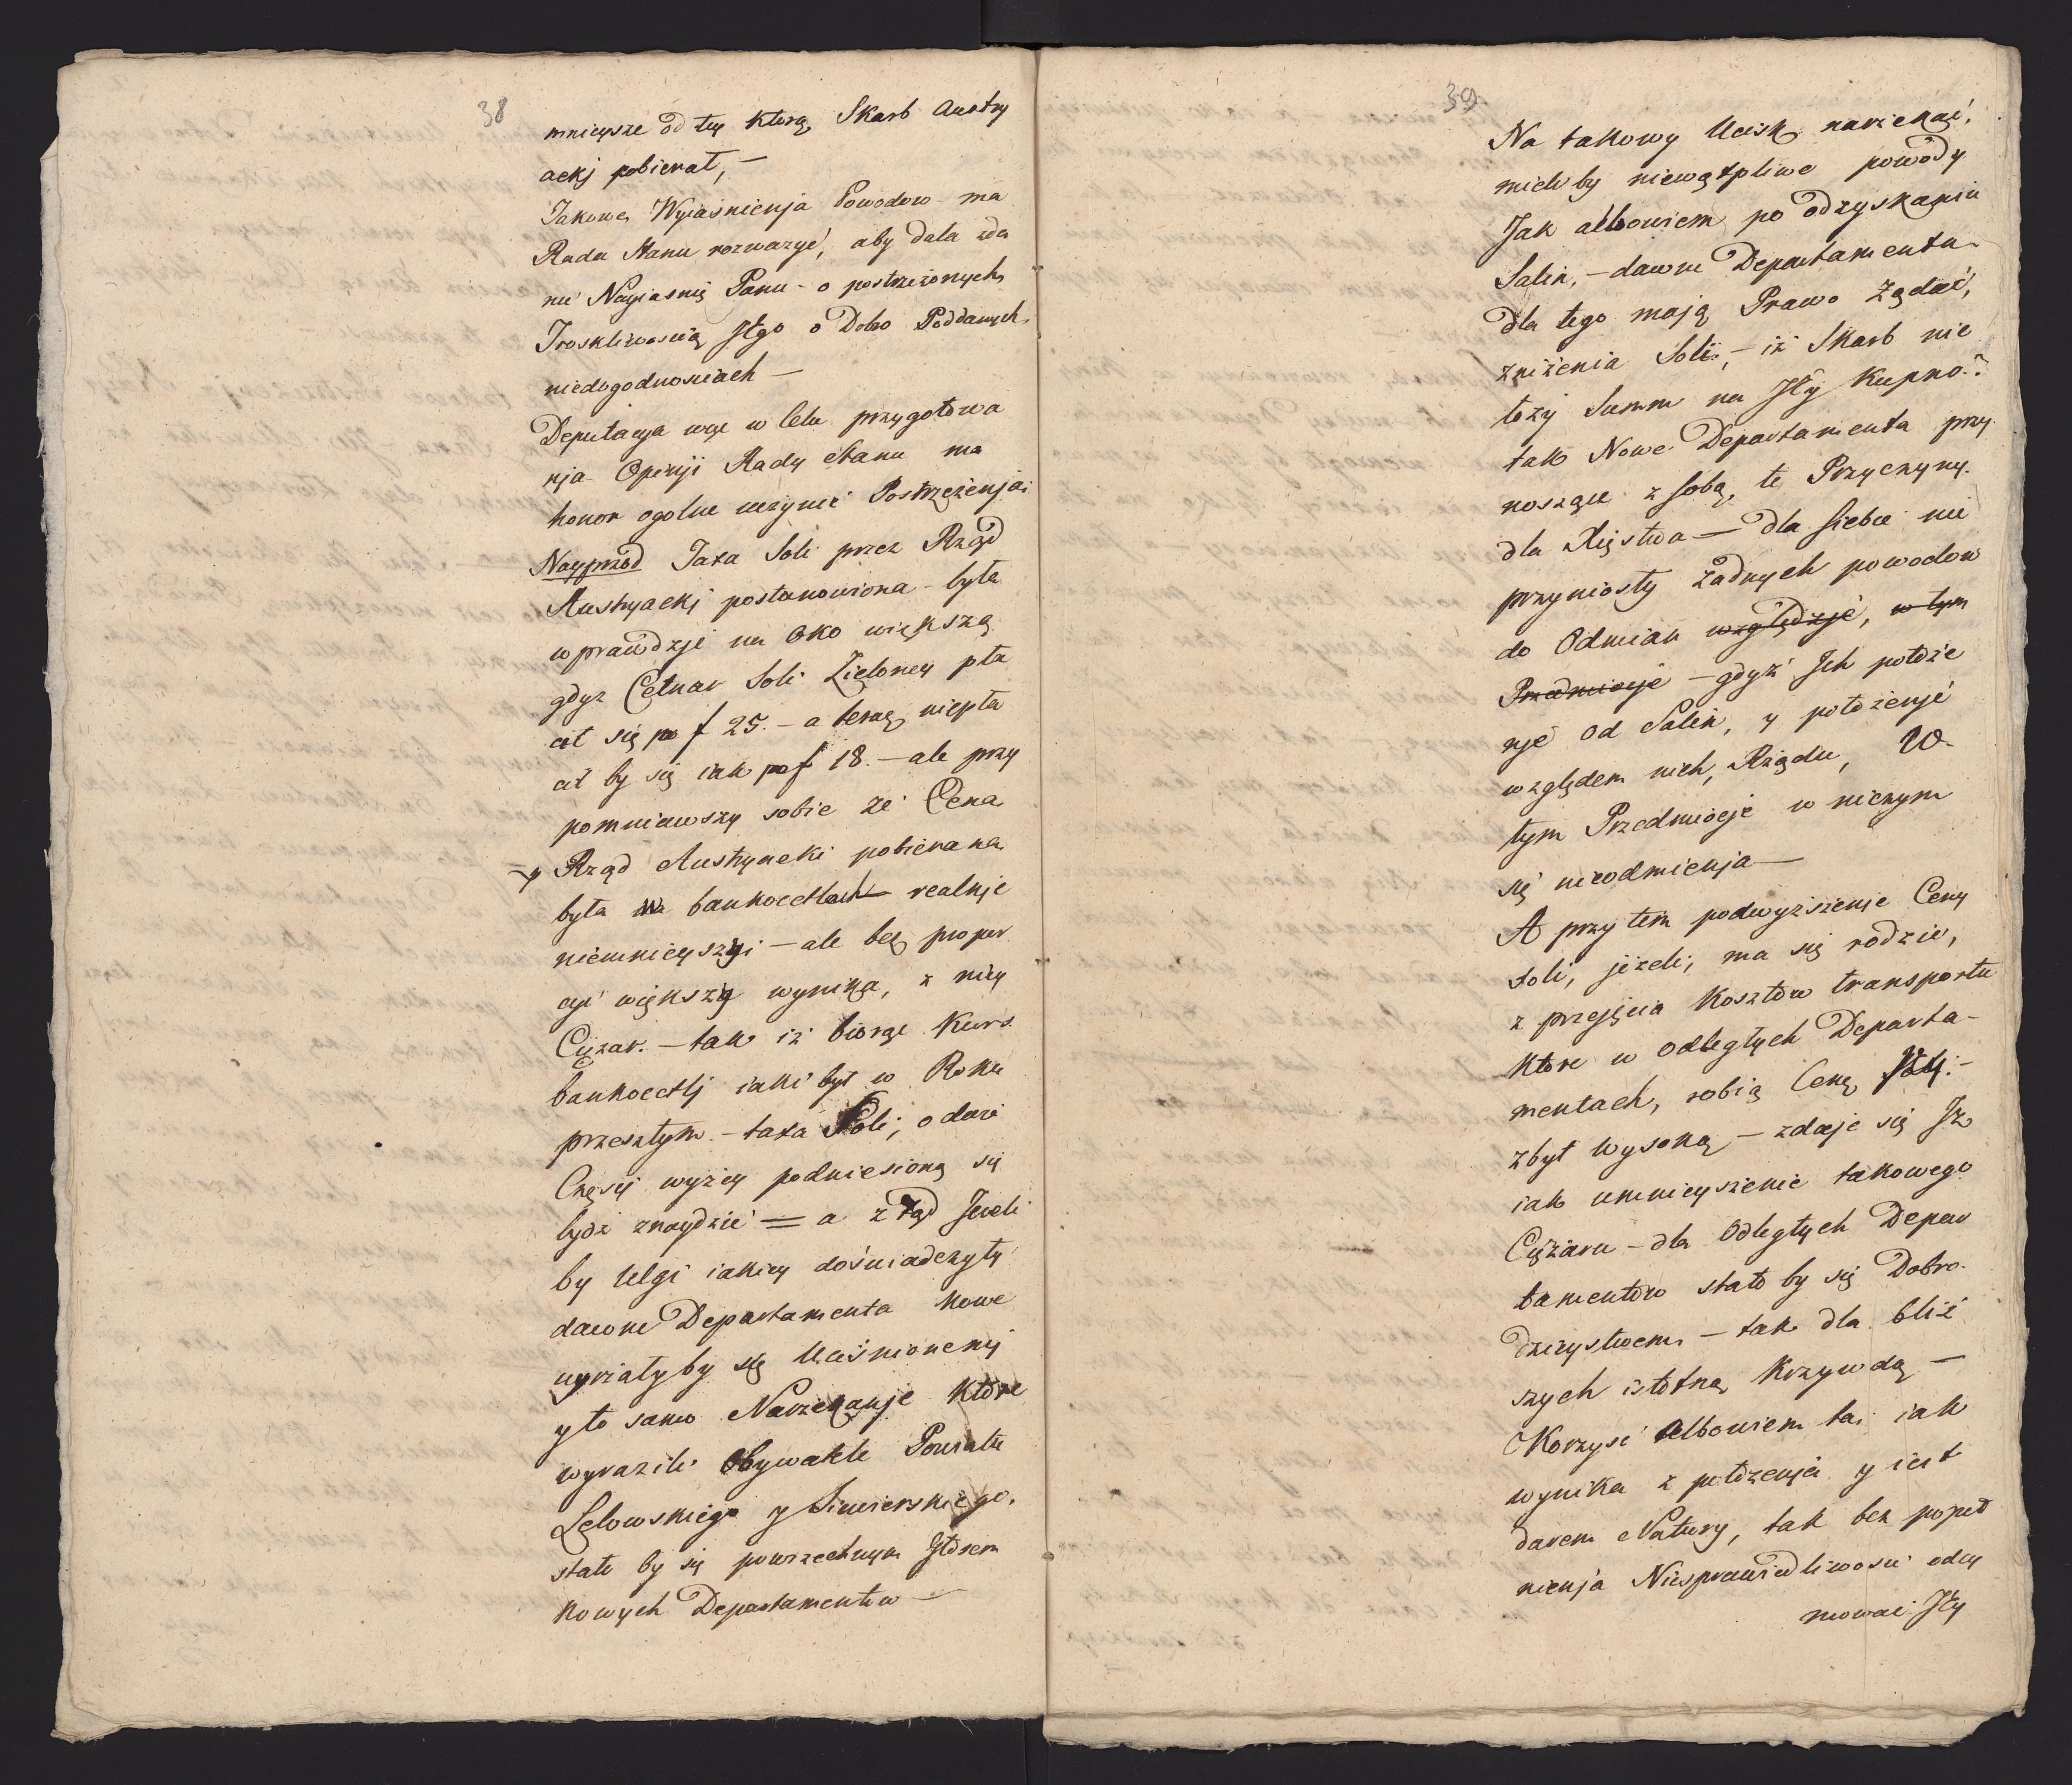 38
mnieysze od tey ktorą Skarb Austry
ackj pobierał, —
Jakowe Wyiaśnienja Powodow ma
Rada Stanu rozwazyć, aby dała zda
nie Nayiasnię Panu - o postrzeżonych
Troskliwością Jego o Dobro Poddanych
niedogodnosciach —
Deputacya więc w Celu przygotowa
nja Opinji Rady Stanu ma
honor ogolne uczynić Postrzeżenja:
Nayprzód Taxa Soli przez Rząd
Austryackj postanowiona - była
wprawdzje na Oko większą
gdyz Cetnar Soli Zieloney pła
cił się po f 25. - a teraz niepła
cił by się iak po f 18. — ale przy
pomniawszy sobie że Cena
p Rząd Austryacki pobierana
była w bankocetlach realnje
niemnieyszyi — ale bez propor
cyi większy wynika, z niey
Ciężar. — tak iż biorąc Kurs
bankocetlj iaki był w Roku
przeszłym. — taxa Soli, o dwie
Częsci wyżey podniesioną się
bydź znaydzie = a ztąd Jeżeli
by Ulgi iakiey doświadczyły
dawne Departamenta nowe
uyrzałyby się Uciśnionemi
y to samo Narzekanje które
wyrazili Obywatele Powiatu
Lelowskiego y Siewierskiego,
stało by się powszechnym Głosem
Nowych Departamentow —
39
Na takowy Ucisk narzekać,
mieli by niewątpliwe powody
Jak albowiem po odzyskaniu
Salin, — dawne Departamenta
dla tego mają Prawo Żądać,
zniżenia Soli, — iż Skarb nie
łoży Summ na Jey Kupno:
tak Nowe Departamenta przy
noszące z sobą, te Przyczyny
dla Xięstwa — dla siebie nie
przyniosły żadnych powodow
do Odmian względzje, w tym
Przedmiocje — gdyż Ich położe
nje od Salin, y położenje
względem nich, Rządu, W
tym Przedmiocje w niczym
się nieodmienja —
A przy tem podwyższenje Ceny
soli, jeżeli, ma się rodzić,
z przejęcia Kosztów transportu
ktore w odległych Departa-
mentach, robią Cenę Jey. —
zbyt wysoką — zdaje się Iż
iak umnieyszenie takowego
Ciężaru — dla Odległych Depar
tamentów stało by się Dobro-
dzieystwem — tak dla bliż
szych istotną Krzywdą —
Korzysć Albowiem ta, iak
wynika z położenja y iest
darem Natury, tak bez popeł
nienja Niesprawiedliwosci odey
mowac Jey